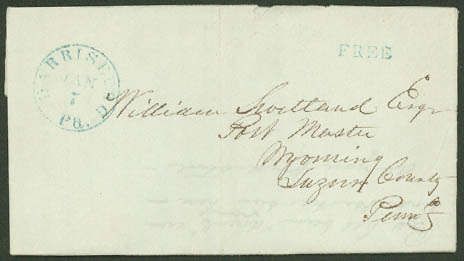 HARRISBURG Pa.
JAN
FREE
William Swetland Esqr
Post Master
Wyoming
Luzern County
Penn